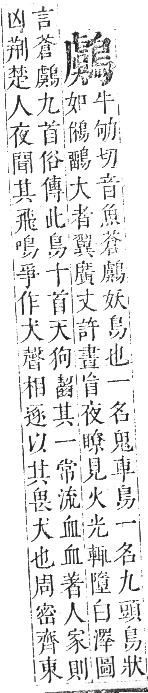 鸆
牛劬切音魚蒼鸆妖鳥也一名鬼車鳥一名九頭鳥狀
如鵂鶹大者翼廣丈許晝盲夜瞭見火光輒墮白澤圖
言蒼鸆九首俗傳此鳥十首天狗齧其一常流血血著人家則
凶荆楚人夜聞其飛鳴爭作犬聲相逐以其畏犬也周密齊東